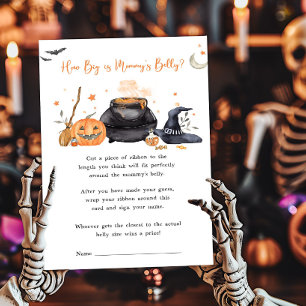 How Big is Mommy's Belly?
Cut a piece of ribbon to the
length you think will fit perfectly
around the mommy's belly.
After you have made your guess,
wrap your ribbon around this
card and sign your name.
Whoever gets the closest to the actual
belly size wins a prize!
Name: